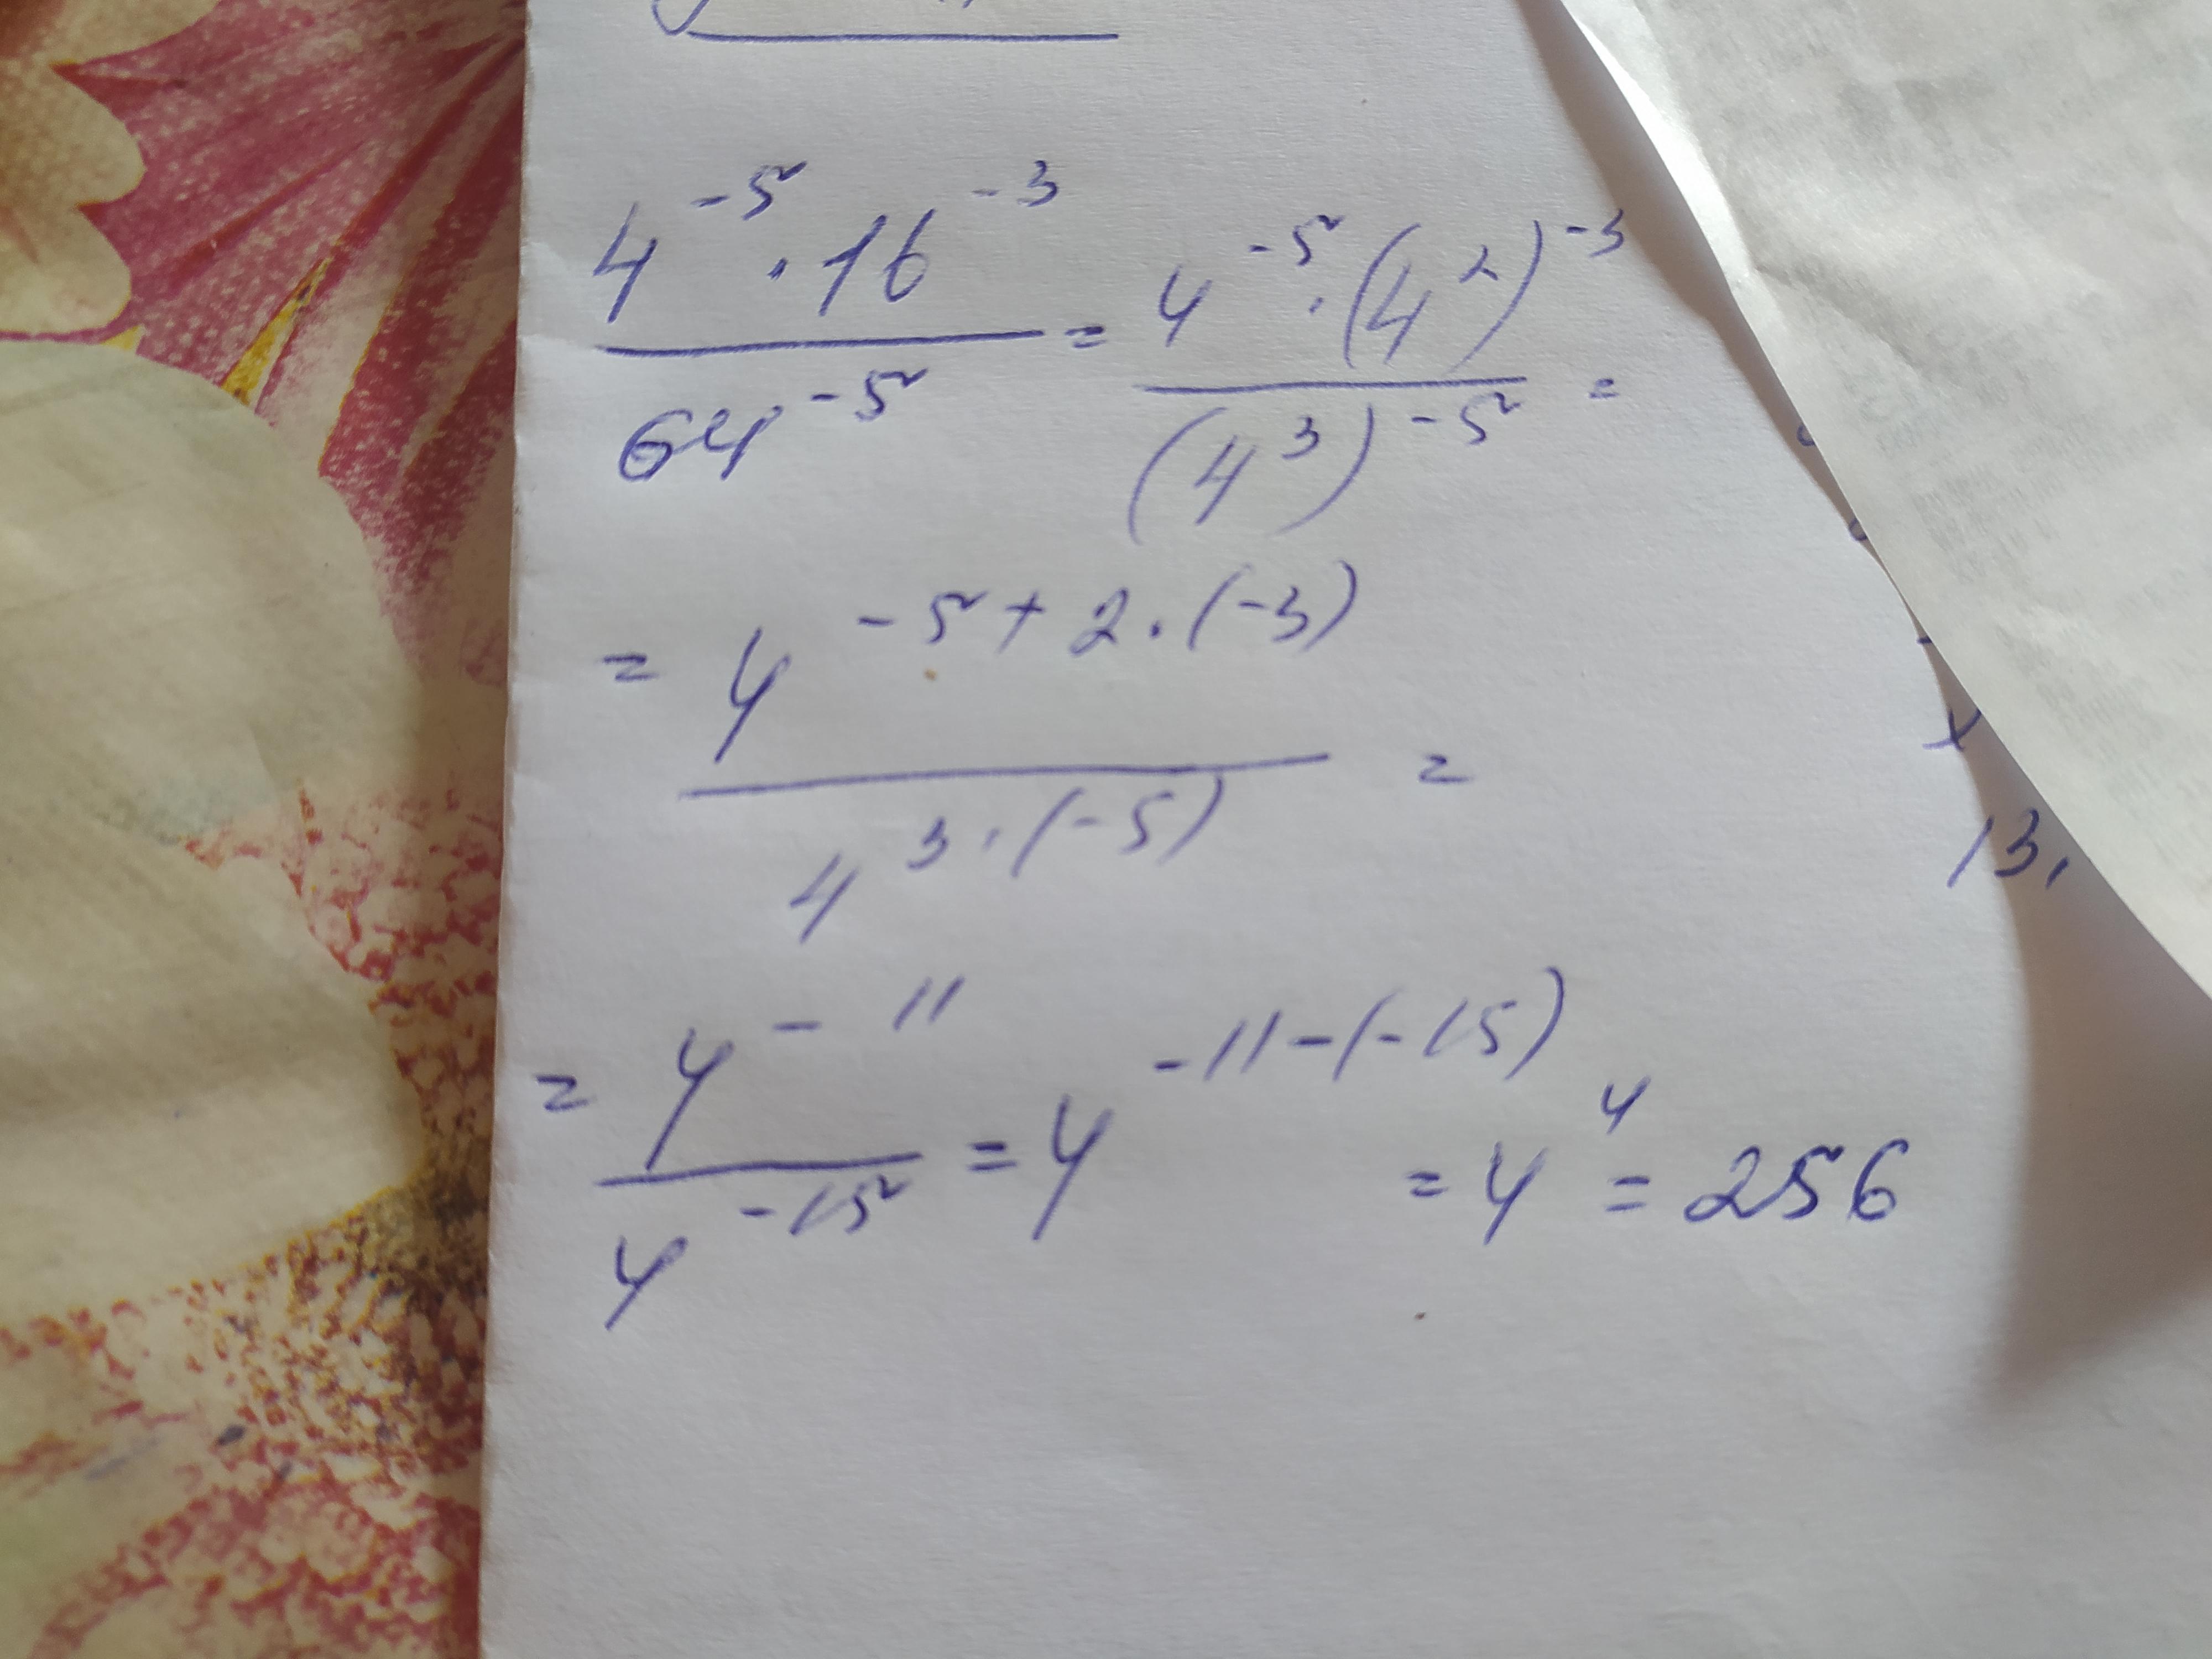 4^-5 · 16^-3 / 64^-5 = 4^-5 · (4^2)^-3 / (4^3)^-5 =
= 4^-5+2·(-3) / 4^3·(-5) =
= 4^-11 / 4^-15 = 4^-11-(-15) = 4^4 = 256
13,